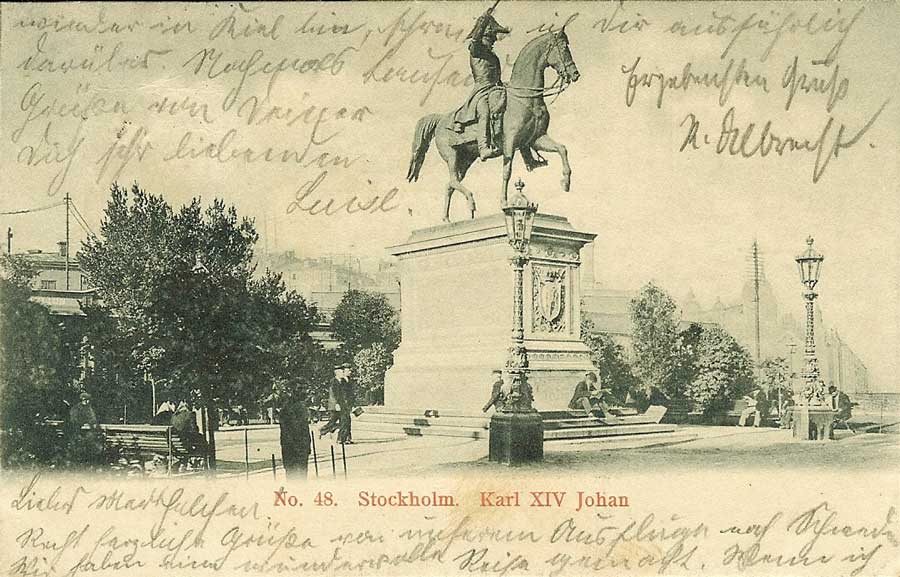 wieder in Kiel bin, schreibe ich Dir ausführlich
darüber. Nochmals tausend
Grüße von Deiner
Dich sehr liebenden
Luise.
Ergebensten Gruß
Albrecht.
No. 48. Stockholm. Karl XIV Johan
Liebes Marthchen
Recht herzliche Grüße von unserem Ausfluge nach Schweden
Wir haben eine wundervolle Reise gemacht. Wenn ich